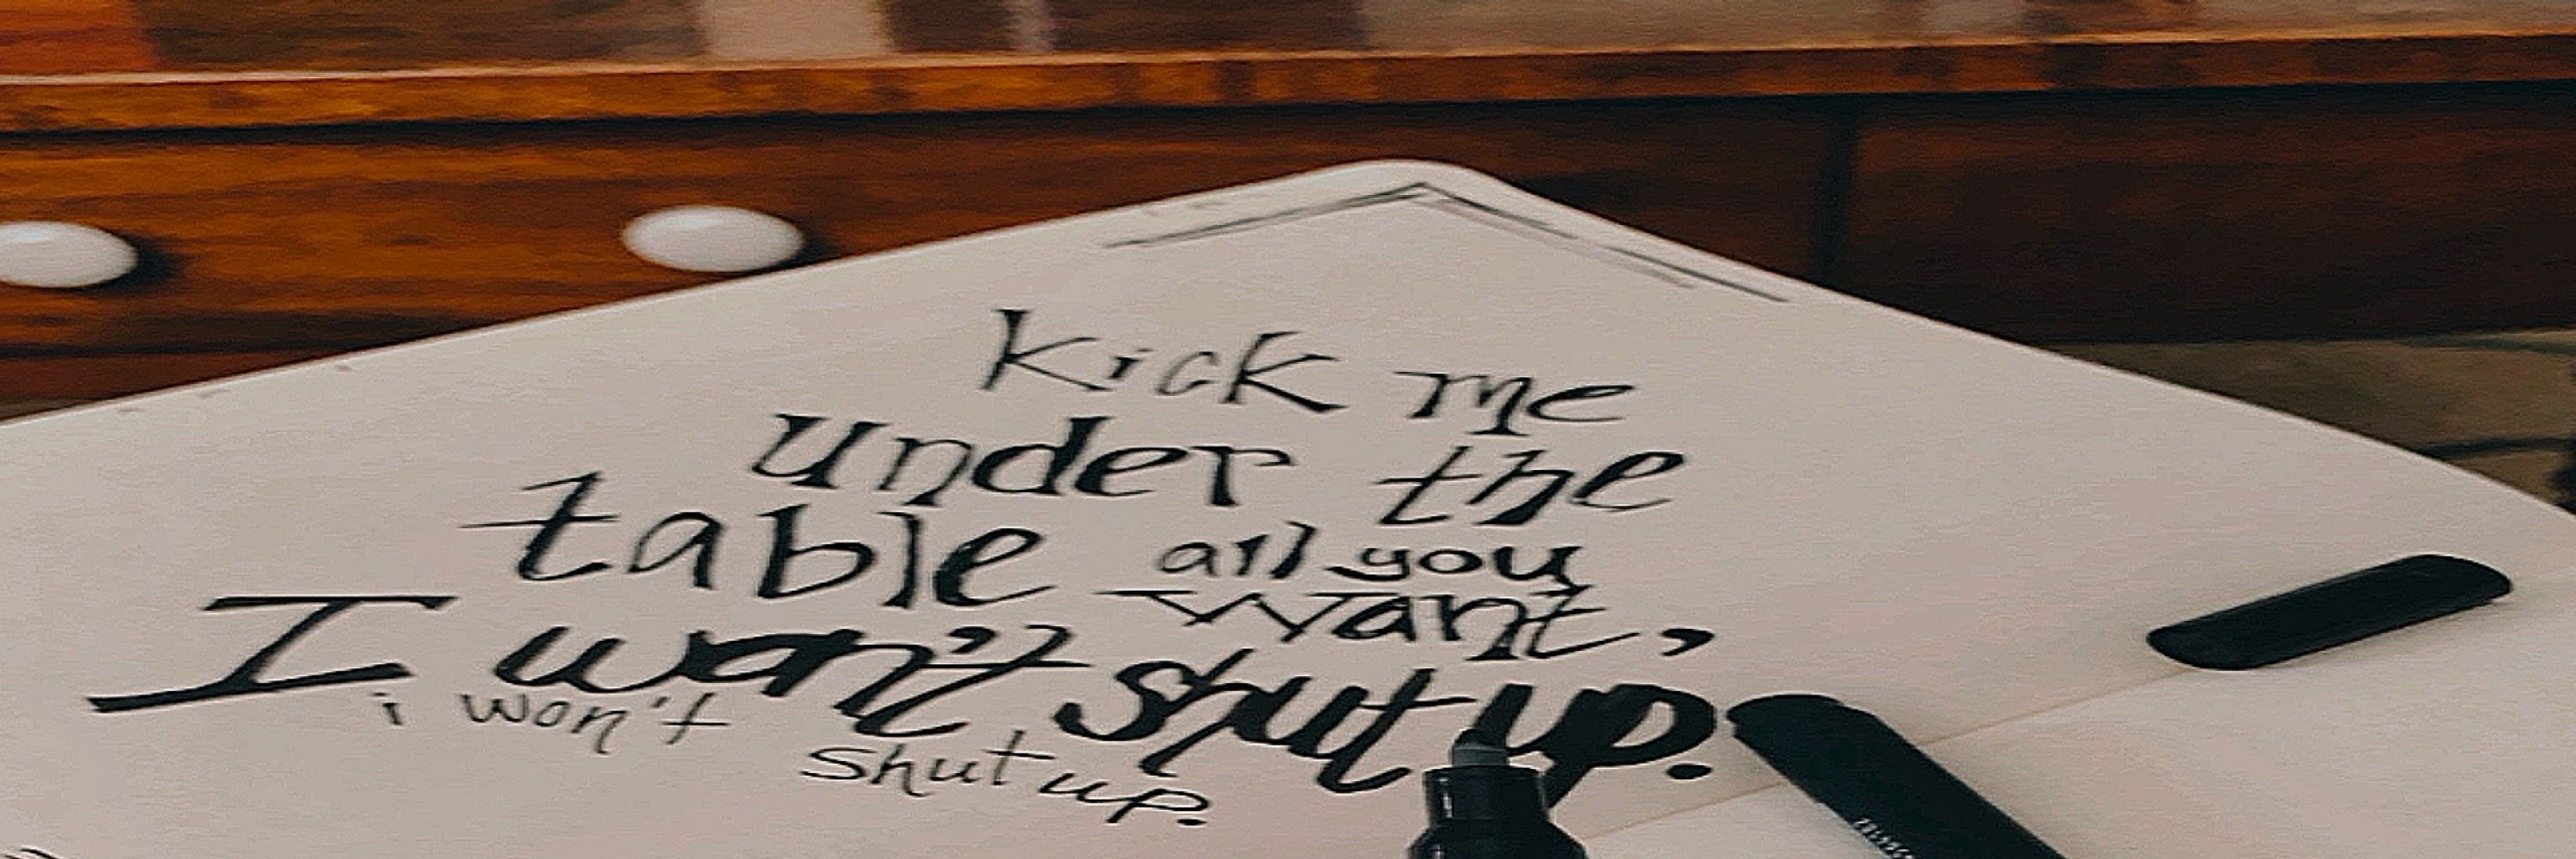 Kick me
under the
table all you
want,
I won't shut up.
i won't
shut up.